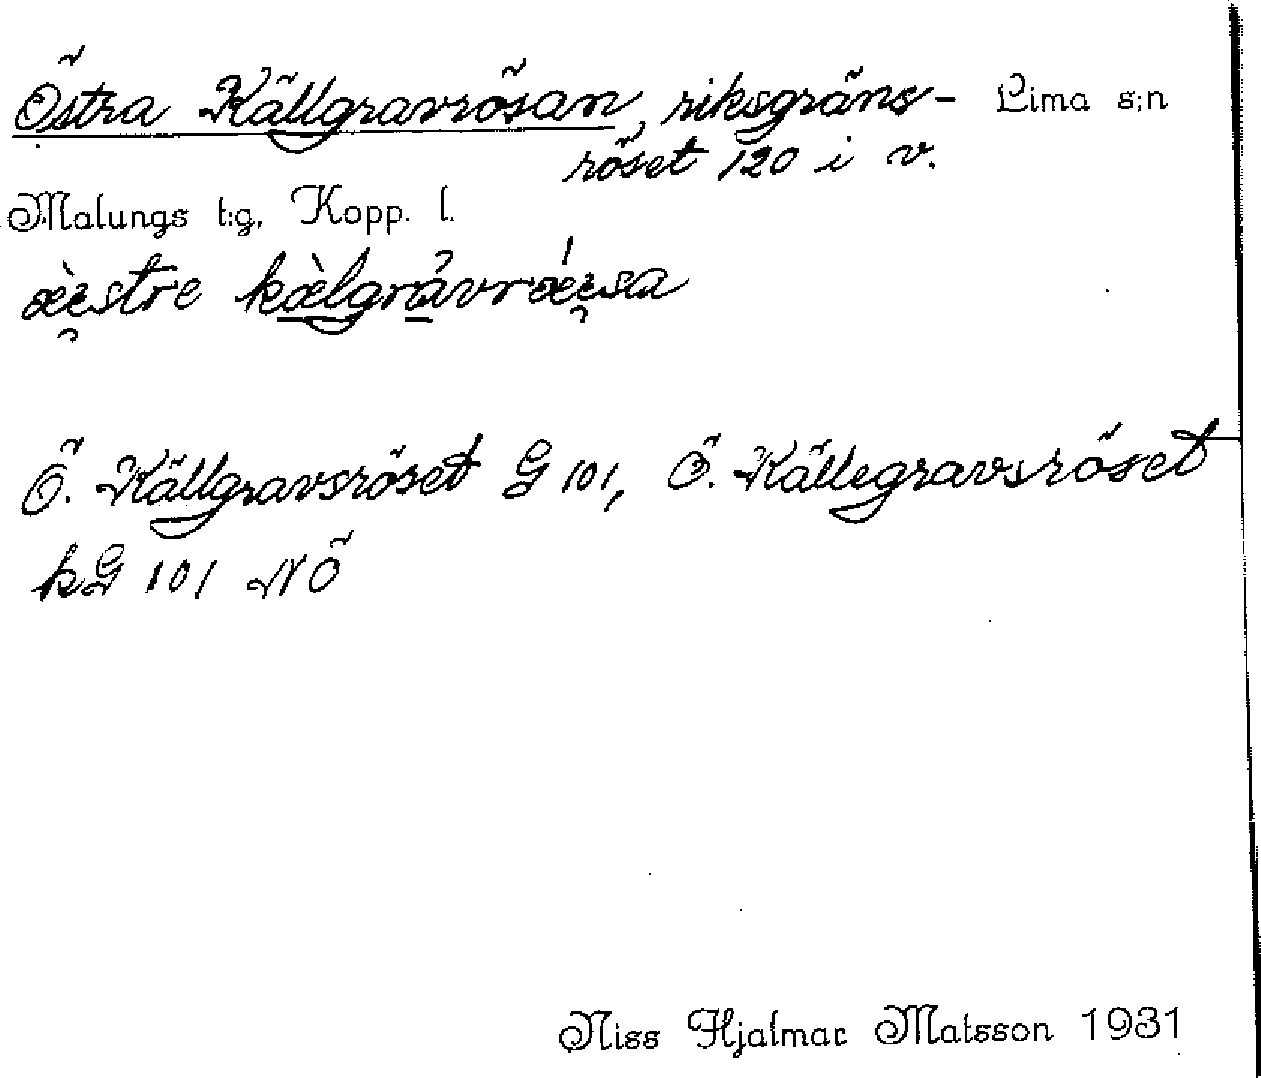 Östra Källgravrösan, riksgräns- Lima s:n
röset 120 i v.
Malungs t:g, Kopp. l.
œ̀stre kœ̀lgrávrœ́sa
Ö. Källgravsröset G 101, Ö. Källegravsröset
kG 101 NÖ
Niss Hjalmar Matsson 1931